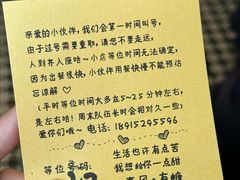 亲爱的小伙伴,我们会第一时间叫号,
由于过号需要重取,请您不要走远,
人到齐入座哈~小店等位时间无法确定,
因为出餐很快,小伙伴用餐快慢不能预估
忘谅解♡
(平时等位时间大多在5~25分钟左右,
是左右哈!周末队伍长时会相对久一些)
爱你们唯~ 电话:18915295596
等位号码:
生活也许有点苦
我想给你一点甜